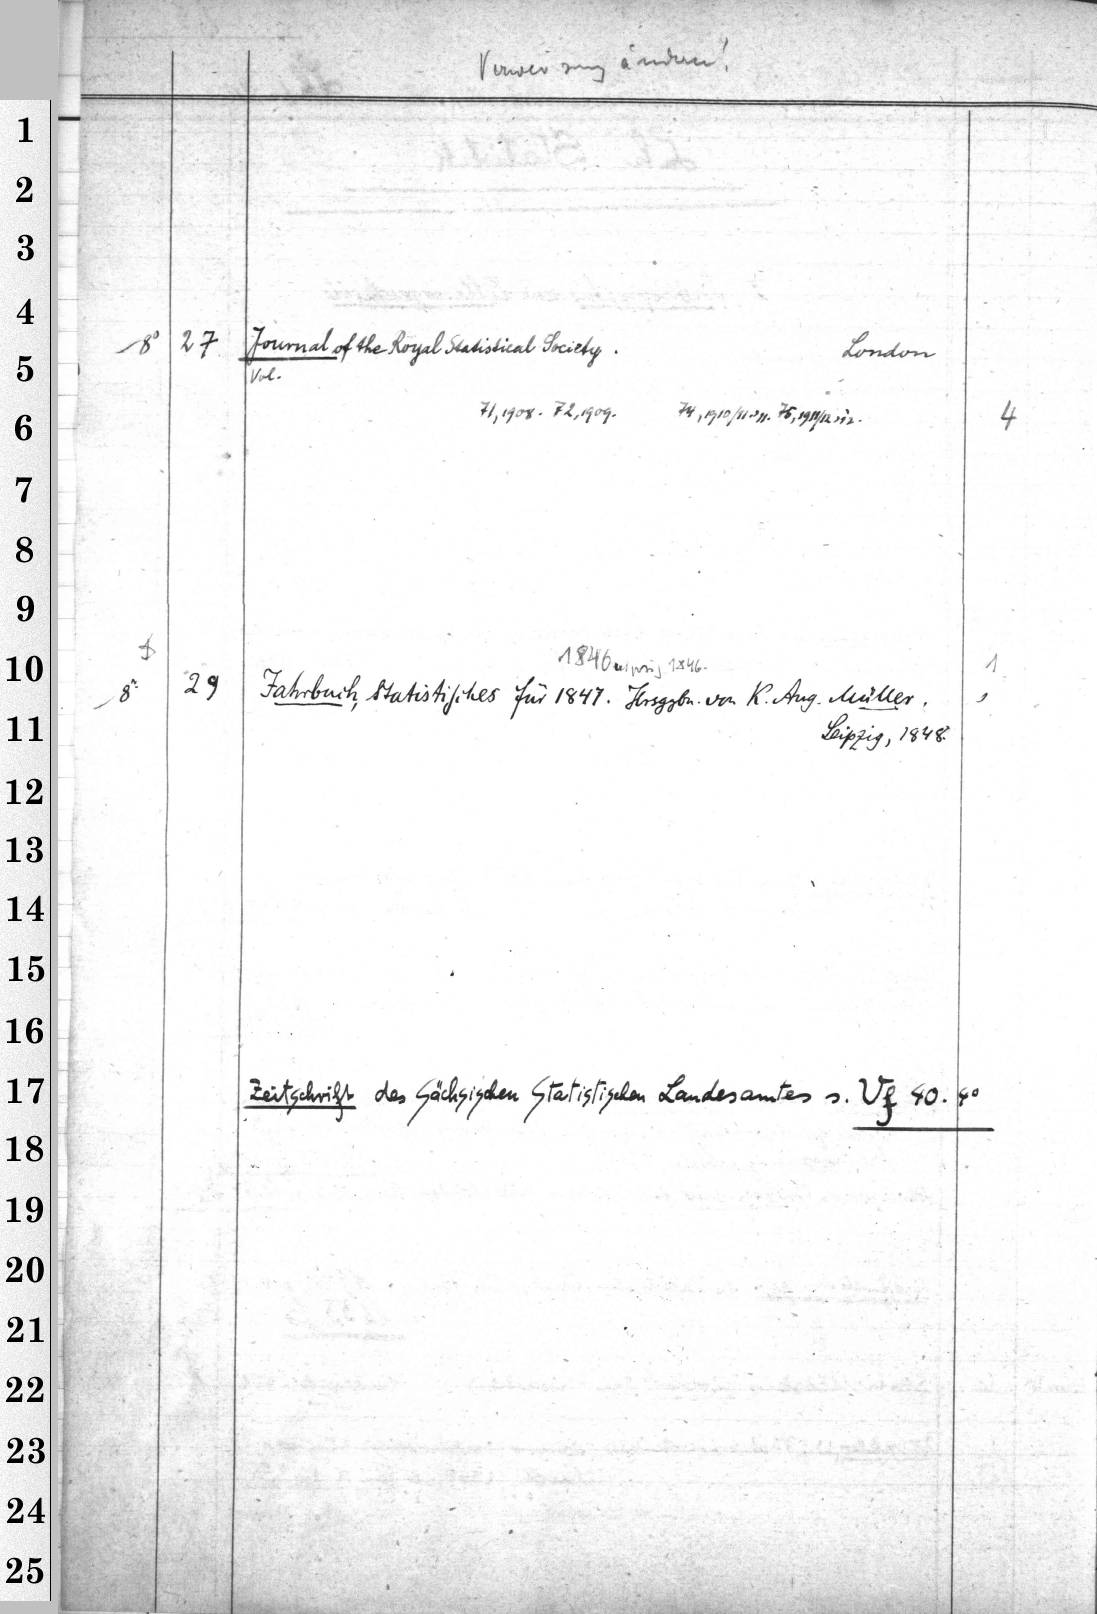 Verweisung ändern!
1
2
3
4
8° 27 Journal of the Royal Statistical Society. London
5
Vol.
6 71, 1908. 72, 1909. 74, 1910/11. 75, 1911/12. 4
7
8
9
10 1846 Leipzig 1846. 1
8° 29 Jahrbuch, Statistisches für 1847. Hrsggbn. von K. Aug. Müller.
11 Leipzig, 1848.
12
13
14
15
16
17 Zeitschrift des Sächsischen Statistischen Landesamtes s. Vf 40. 4°
18
19
20
21
22
23
24
25